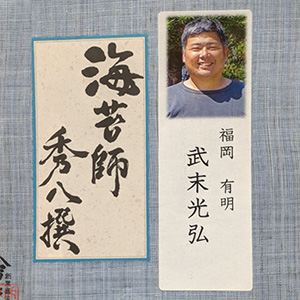 海苔師
秀八撰
福岡 有明
武末光弘